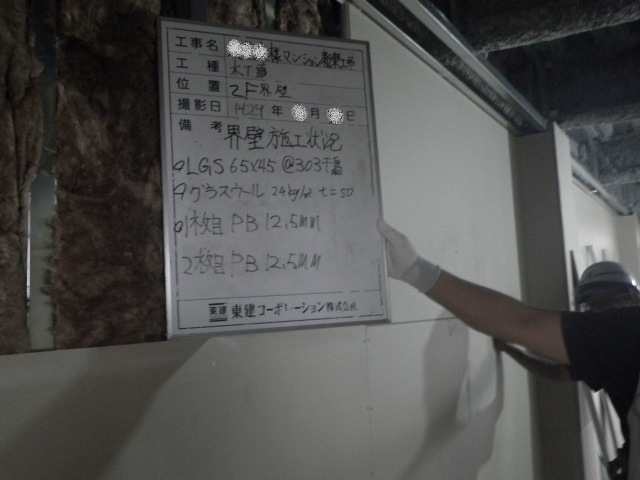 工事名 様マンション新築工事
工種 木工事
位置 2F界壁
撮影日 H24年 月 日
備考 界壁施工状況
LGS 65×45 @303千鳥
グラスウール 24kg/㎥ t=50
1枚目 PB 12.5mm
2枚目 PB 12.5mm
東建 東建コーポレーション株式会社